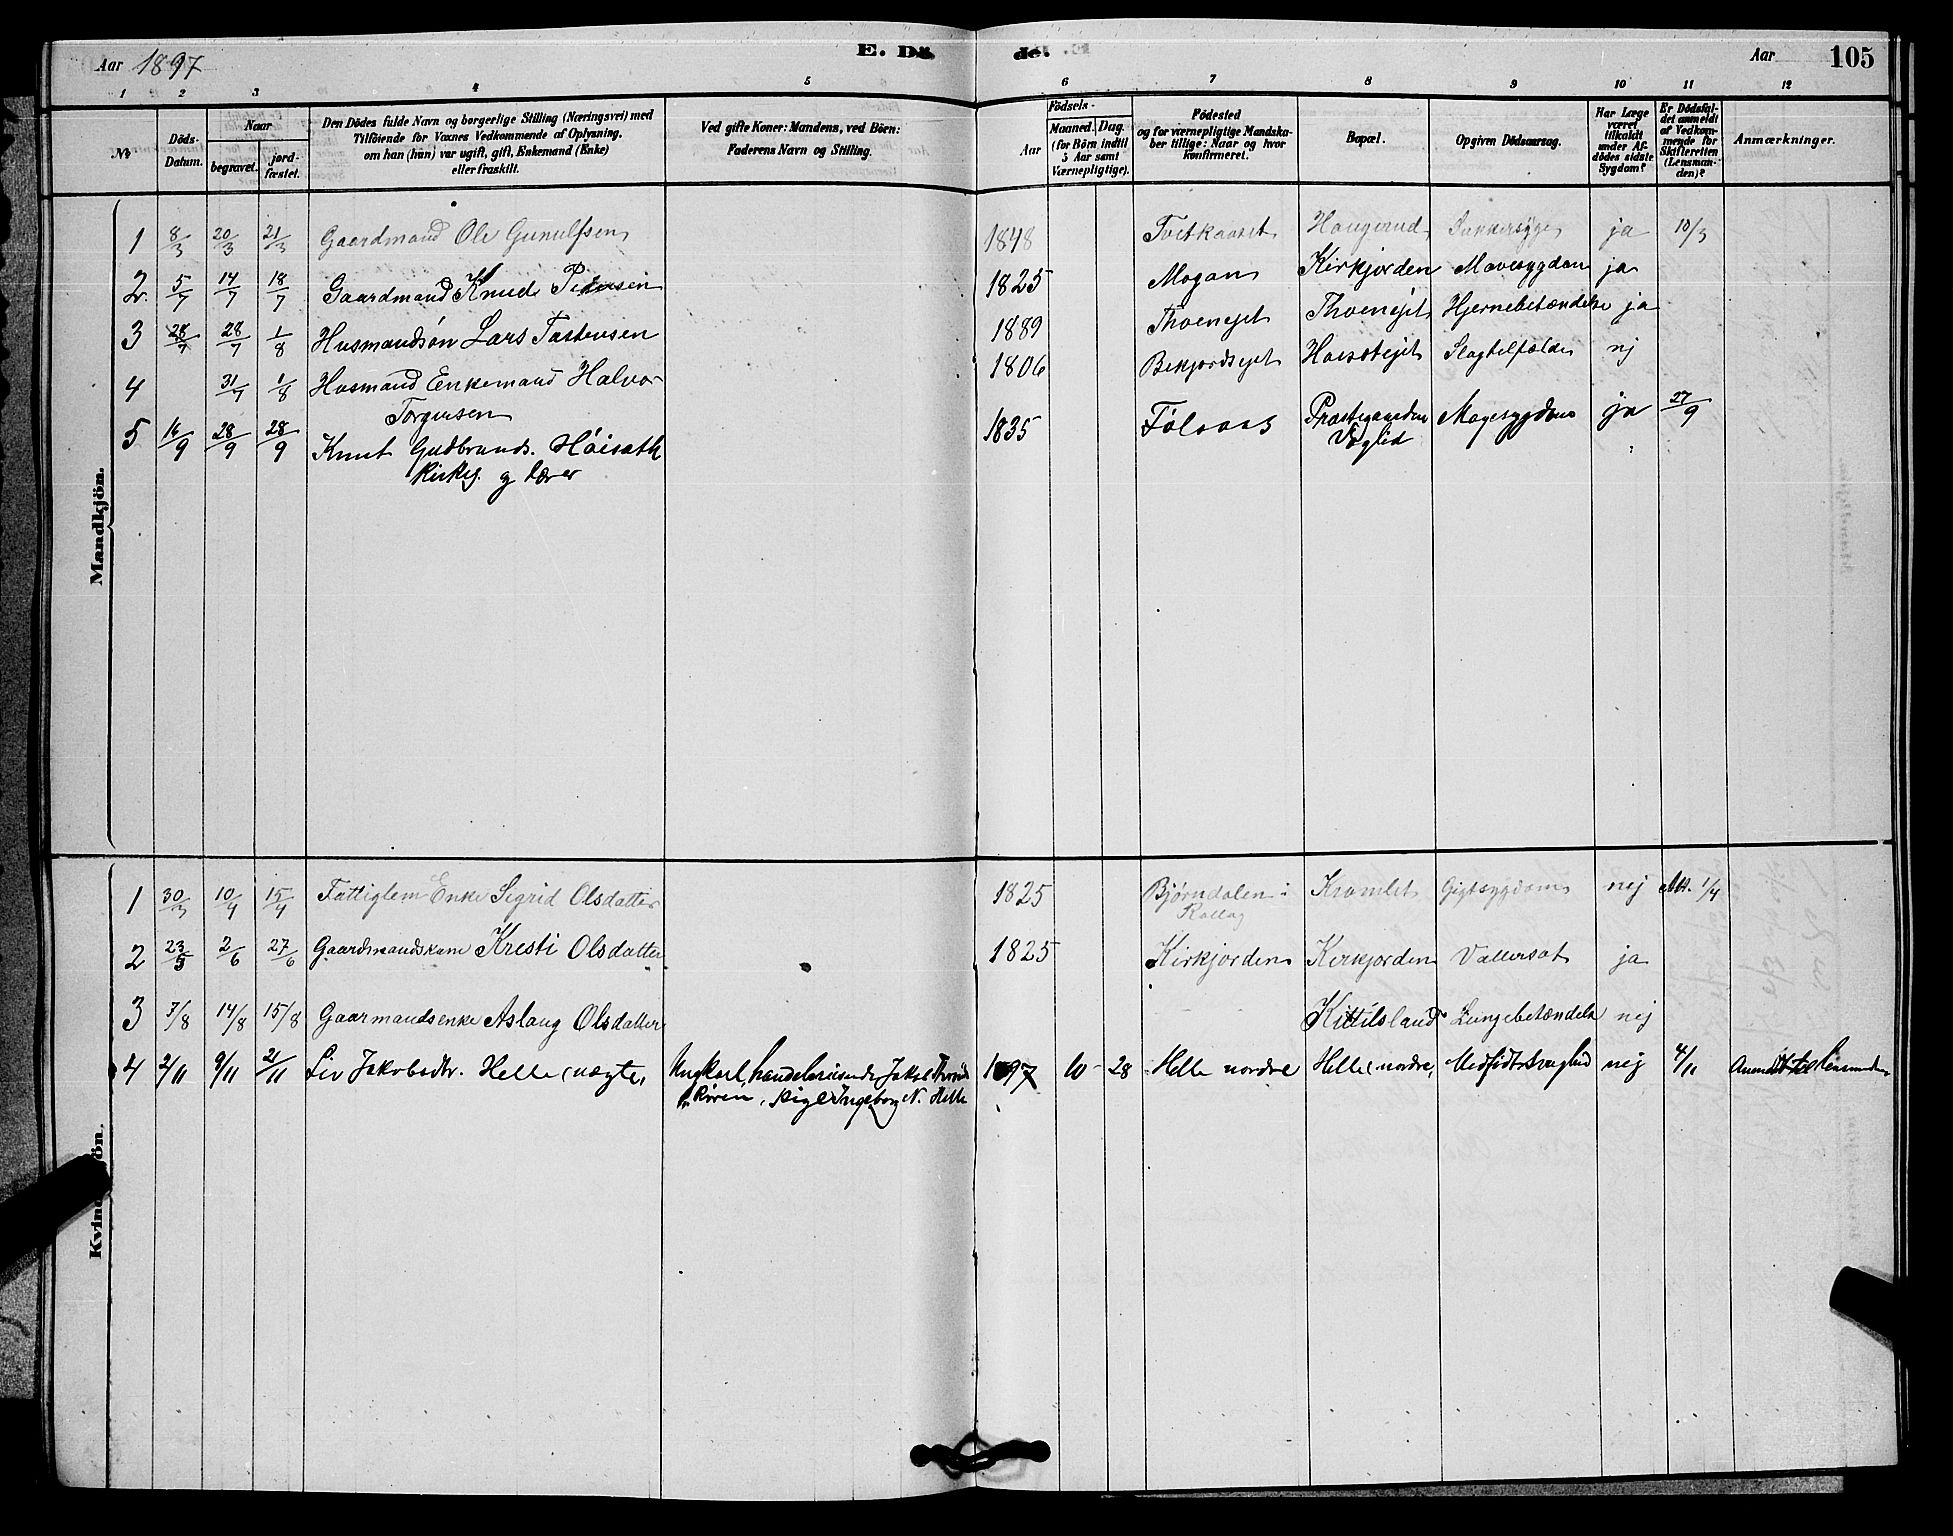 Aar 1897 E. Dö de. Aar 105
1 2 3 4 5 6 7 8 9 10 11 12
No Döds-Datum. Naar begravet. jord-fæstet. Den Dödes fulde Navn og borgerlige Stilling (Næringsvei) med Tilföiende for Voxnes Vedkommende af Oplysning, om han (hun) var ugift, gift, Enkemand (Enke) eller fraskilt. Ved gifte Koner: Mandens, ved Börn: Faderens Navn og Stilling. Födsels- Aar Maaned. Dag. (for Börn indtil 5 Aar samt Værnepligtige). Födested og for værnepligtige Mandska-ber tillige: Naar og hvor konfirmeret. Bopæl. Opgiven Dödsaarsag. Har Læge været tilkaldt under Af-dödes sidste Sygdom? Er Dödsfal-det anmeldt af Vedkom-mende for Skifteretten (Lensman-den)? Anmærkninger.
Mandkjön.
1 8/3 20/3 21/3 Gaardmand Ole Gunulfsen 1848 Tvitkaaset Haugerud Sukkersyge ja 10/3
2. 5/7 14/7 18/7 Gaardmand Knud Pedersen 1825 Mogan Kirkjorden Mavesygdom ja
3 28/7 28/7 1/8 Husmandsøn Lars Tostensen 1889 Thveneiet Thveneiet Hjernebetændelse ja
4 31/7 1/8 Husmand Enkemand Halvor 1806 Bekjordseiet Slagtilfælde nej
Torgersen
5 16/9 28/9 28/9 Knut Gudbrands. Höisæth 1835 Følaas Præstegaarden Mavesygdom ja 27/9
Kirkes. og lærer Væglid
Kvindkjön.
1 30/3 10/4 15/4 Fattiglem Enke Sigrid Olsdatter 1825 Bjørndalen i Kromlet Gigtsygdom nej 1/4
Rollag
2 23/5 2/6 27/6 Gaardmandskone Kresti Olsdatter 1825 Kirkjorden Kirkjorden Vattersot ja
3 7/8 14/8 15/8 Gaarmandsenke Aslaug Olsdatter Kittilsland Lungebetændelse nej
4 2/11 9/11 21/11 Liv Jakobsdtr. Helle (uægte) Ungkarl, handelsreisende Jakob 1897 10 28 Helle nordre Helle (nordre) Medfödt svaghed nej 4/11 Anmeldt Lensmanden
Rören, Pige Ingeborg N. Helle